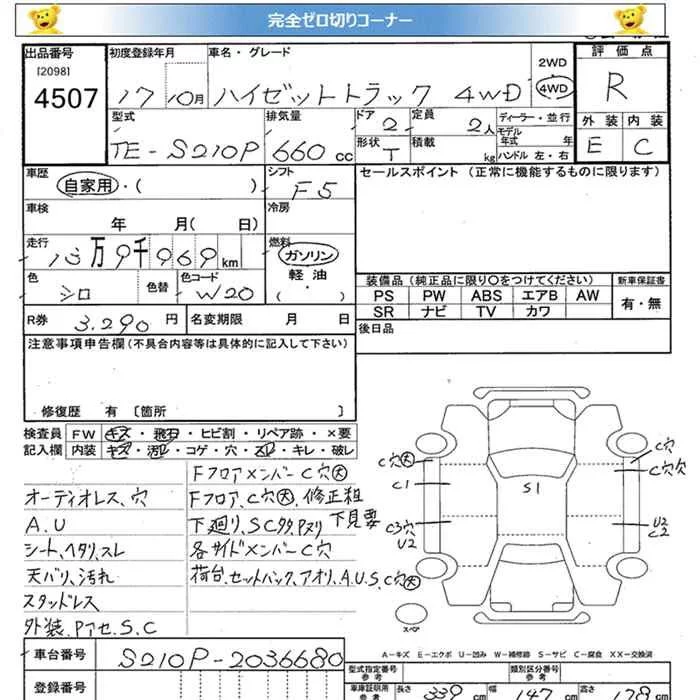 完全ゼロ切りコーナー
出品番号 初度登録年月 車名・グレード 評価点
[2098] 2WD
4507 17 10月 ハイゼットトラック 4WD 4WD R
型式 排気量 ドア 2 定員 2人 ディーラー・並行 外装 内装
モデル年式 年
TE-S210P 660cc 形状 T 積載 kg ハンドル 左・右 E C
車歴 シフト セールスポイント (正常に機能するものに限ります)
自家用・( ) F5
車検 冷房
年 月( 日)
走行 燃料
万9千969km ガソリン
色 色替 色コード 軽油 装備品 (純正品に限り○をつけてください) 新車保証書
シロ W20 ・( ) PS PW ABS エアB AW 有・無
SR ナビ TV カワ
R券 3,290円 名変期限 月 日 後日品
注意事項申告欄 (不具合内容等は具体的に記入して下さい)
修復歴 有 〔箇所 〕
検査員 FW キズ・飛石・ヒビ割・リペア跡・×要
記入欄 内装 キズ・汚レ・コゲ・穴・スレ・キレ・破レ
Fフロアメンバー C穴大
オーディオレス、穴 Fフロア、C穴大、修正粗
A.U 下廻り、SC多、Pヌリ 下見要
シート、ヘタリ、スレ 各サイドメンバーC穴
天バリ、汚れ 荷台、セットバック、アオリ、A.U.S,C穴大
スタッドレス
外装、Pアセ、S、C
C穴大 C穴
C1 S1 C穴穴
C3穴 U2
U2 C2
スペア
A−キズ E−エクボ U−凹み W−補修跡 S−サビ C−腐食 XX−交換済
車台番号 S210P-2036680 型式指定番号 参考 類別区分番号 参考
登録番号 車庫証明用 参考 長さ 339cm 幅 147cm 高さ 178cm